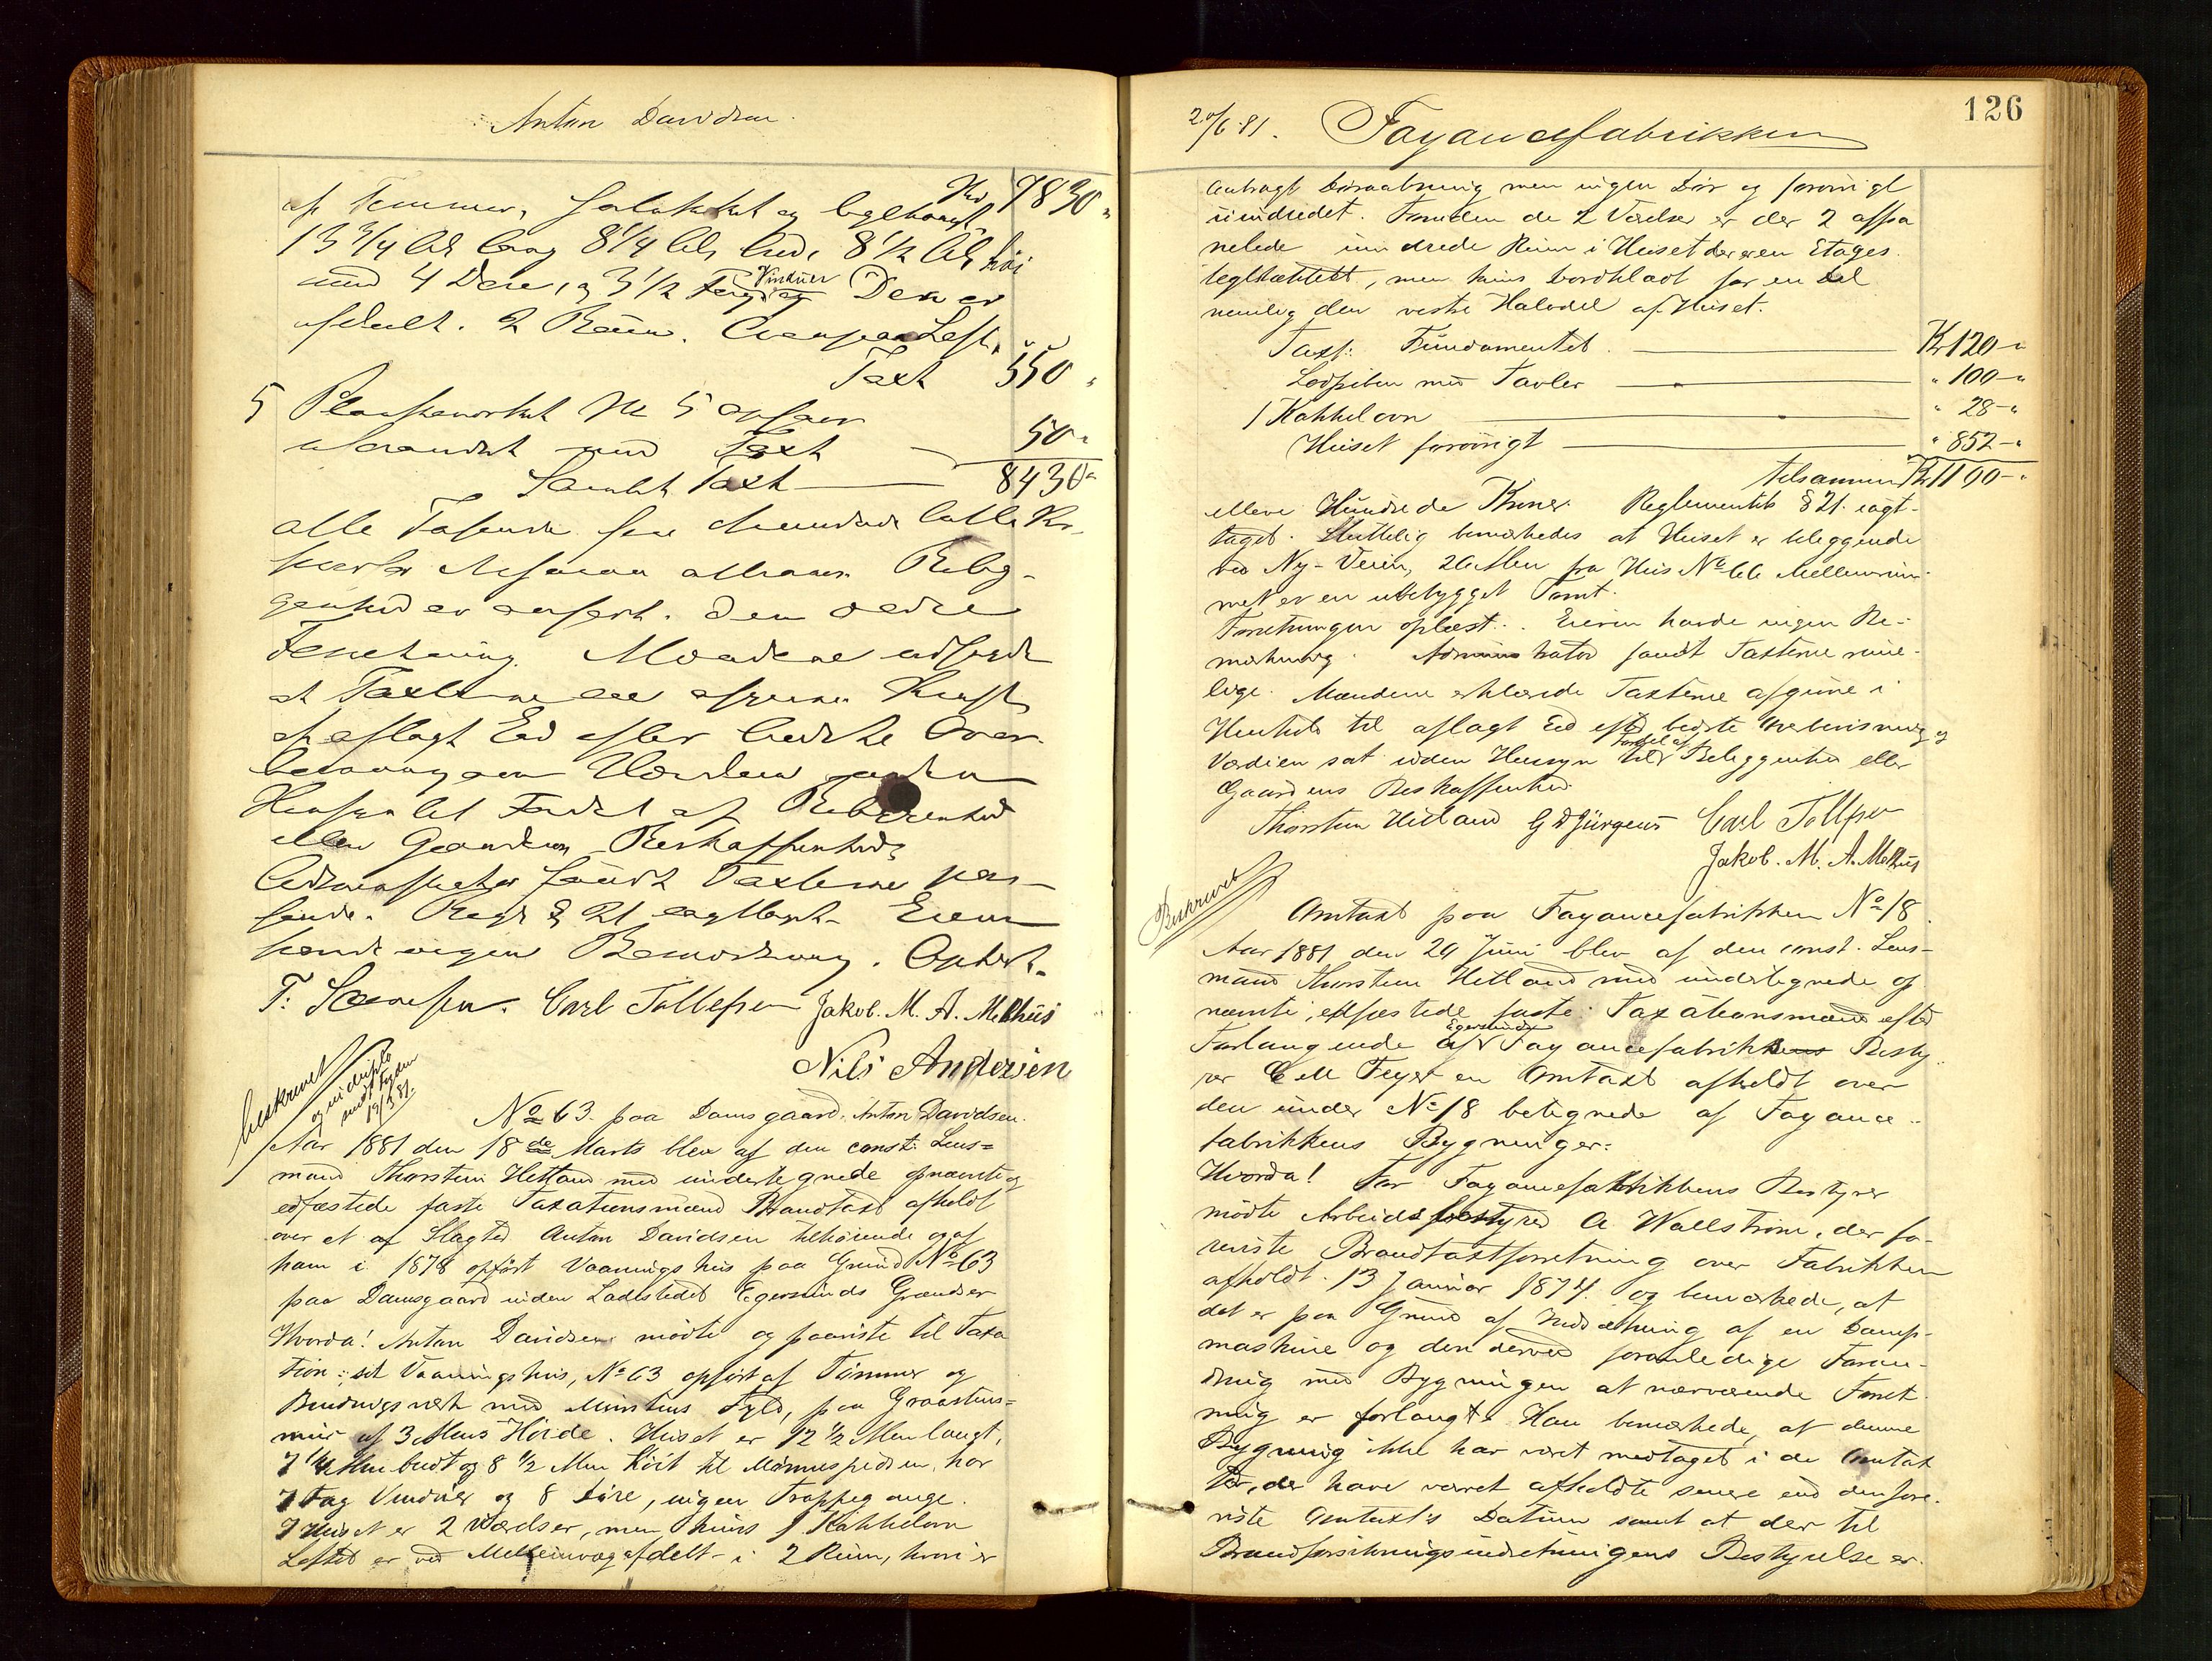 Anton Davidsen.
Kr 7830 "
af Tømmer,
13 3/4 Al lang 8 1/4 Al 8 1/2 Al høi
med 4 Døre, og 3 1/2 Fag Vinduer Den er
afdeelt. 2 Rum.
Taxt 550 "
5
No 5
med Taxt 50 "
Samlet Taxt 8430 "
alle
er anført. Den
Forretning. Mændene
at Taxterne ere afgivne
aflagt Ed efter bedste Over-
bevisning om Værdien uden
Hensyn til Fordel af Beliggenhed
eller Gaardens Beskaffenhed.
fandt Taxterne pas-
sende. Regl § 21 iagttaget. Eieren
havde ingen Bemærkning. Oplæst.
Carl Tollefsen Jakob. M. A. Melhus
Nils Andersen
beskrevet
19/3 81
No 63 paa Damsgaard. Anton Davidsen.
Aar 1881 den 18de Marts blev af den const: Lens=
mand Thorstein Hetland med undertegnede opnævnte og
edfæstede faste Taxationsmænd Brandtaxt afholdt
over et af Slagter Anton Davidsen tilhørende og af
ham i 1878 opført Vaaningshus paa Grund No 63
paa Damsgaard inden Ladestedet Egersunds Grændser
Hvorda! Anton Davidsen mødte og paaviste til Taxa
tion: sit Vaaningshus, No 63 opført af Tømmer og
Bindingsværk med Murstens Fyld, paa Graastens=
mur af 3 Alens Høide. Huset er 12 1/2 Alen langt,
7 1/4 Alen bredt og 8 1/2 Alen høit til Mønnespidsen, har
7 Fag Vinduer og 8 Døre, ingen Trappegange.
I Huset er 2 Værelser, men kuns 1 Kakkelovn
Loftet er ved Mellemvæg afdelt i 2 Rum, hvori er
126
20/6 81. Fayancefabrikken
anbragt Døraabning men ingen Dør og forøvrigt
uindredet. Foruden de 2 Værelser er der 2 afpa
nelede inndrede Rum i Huset der er en Etages.
teglhættet, men kuns bordklædt for en Del
nemlig den vestre Halvdel af Huset.
Taxt: Fundamentet Kr 120 - "
Lodpiben med Tavler " 100 - "
1 Kakkelovn " 28 - "
Huset forøvrigt " 852 - "
tilsammen Kr 1100 - "
elleve Hundrede Kroner. Reglementets § 21. iagt-
taget. Sluttelig bemærkedes at Huset er beliggende
ved Ny-Veien, 20 Alen fra Hus No 66 Mellemrum-
met er en ubebygget Tomt.
Forretningen oplæst. Eieren havde ingen Be-
mærkning. Administrator fandt Taxterne rime-
lige. Mændene erklærede Taxterne afgivne i
Henhold til aflagt Ed efter bedste Overbevisning og
Værdien sat uden Hensyn til Fordel af Beliggenhed eller
Gaardens Beskaffenhed.
Thorstein Hetland G D Jürgens Carl Tollefsen
Jakob. M. A. Melhus
Beskrevet
Omtaxt paa Fayancefabrikken No 18.
Aar 1881 den 20 Juni blev af den const. Lens-
mand Thorstein Hetland med undertegnede op
nævnte, edfæstede faste Taxationsmænd efter
Forlangende af Egersunds Fayancefabrikkens Besty
rer C M Feyer en Omtaxt afholdt over
den under No 18 betegnede af Fayance-
fabrikkens Bygninger:
Hvorda! For Fayancefabrikkens Bestyrer
mødte Arbeidsbestyrer A Wallstrøm, der fo-
reviste Brandtaxtforretning over Fabrikken
afholdt 13 Januar 1874. og bemærkede, at
det er paa Grund af Indsætning af en Damp-
maskine og den derved foranledige Foran-
dring med Bygningen at nærværende Forret
ning er forlangt. Han bemærkede, at denne
Bygning ikke har været medtaget i de Omtax
ter, der have været afholdte senere end den fore-
viste Omtaxts Datum samt at der til
Brandforsikringsindretningens Bestyrelse er.